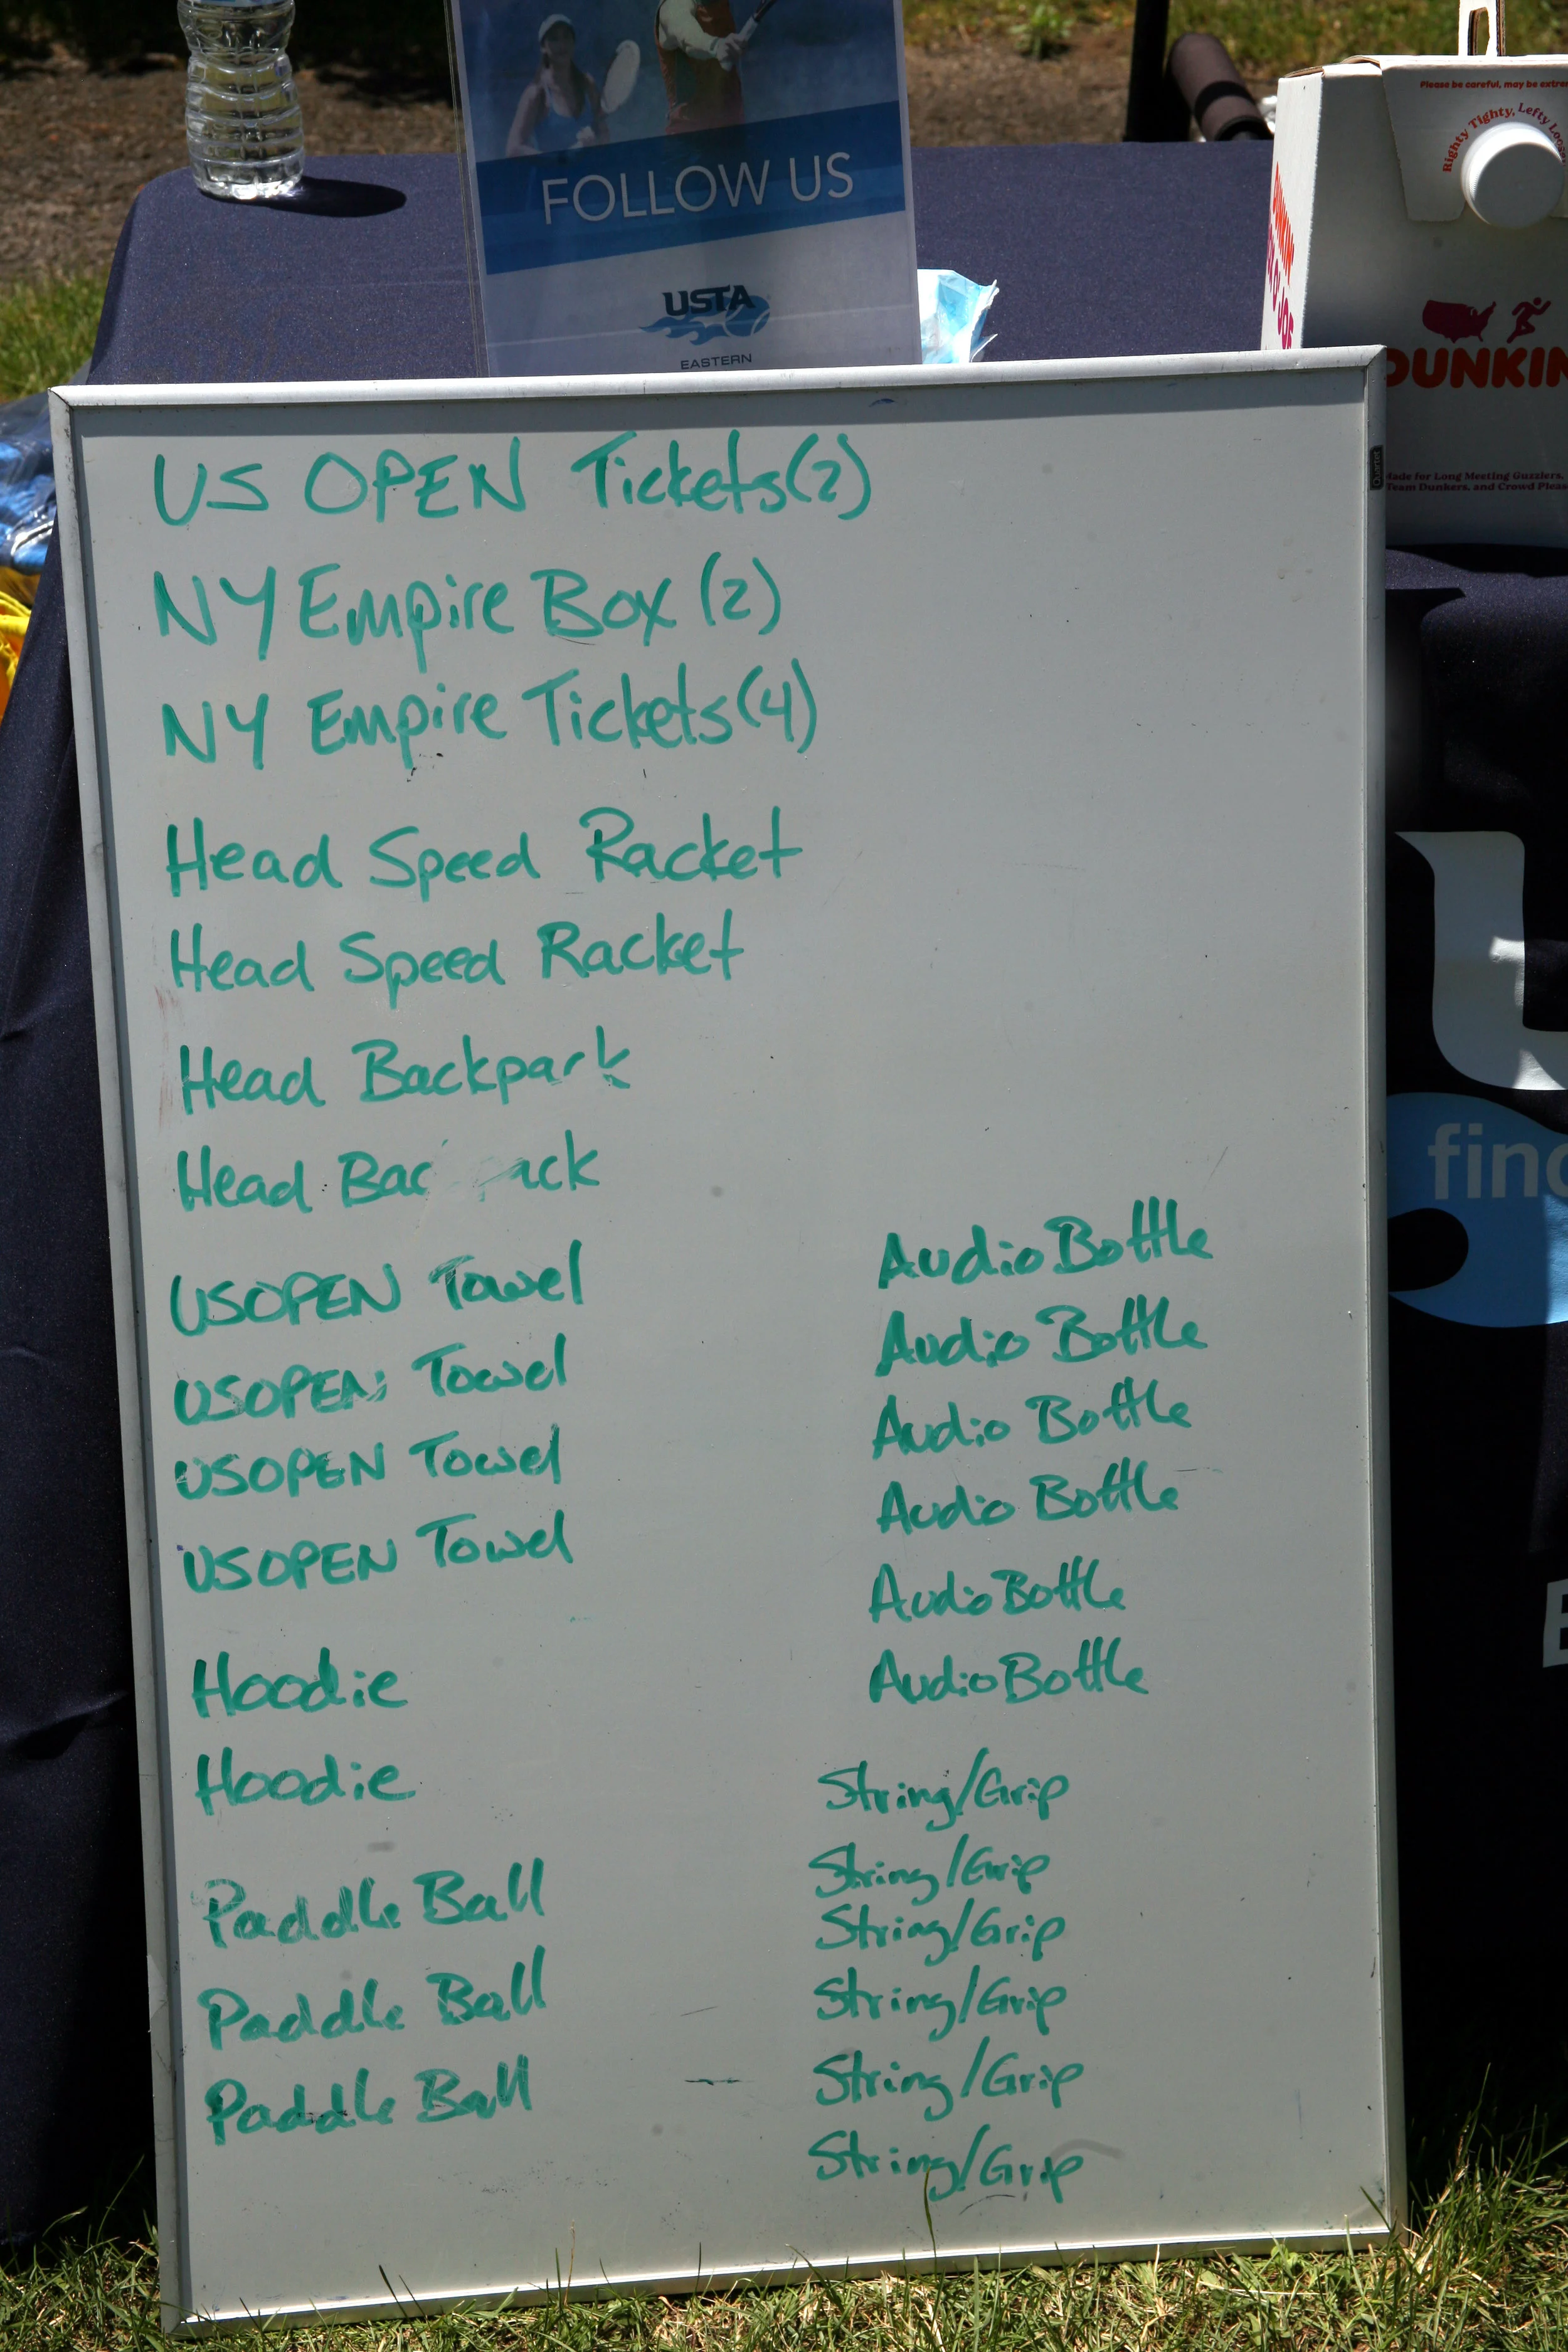 Please be careful, may be extre
Righty Tighty, Lefty Loo
FOLLOW US
USTA
EASTERN
DUNKIN'
DUNKIN
Made for Long Meeting Guzzlers,
Team Dunkers, and Crowd Pleas
Quartet
US OPEN Tickets(2)
NY Empire Box (2)
NY Empire Tickets(4)
Head Speed Racket
Head Speed Racket
Head Backpark
Head Bac ack
USOPEN Towel
USOPEN Towel
USOPEN Towel
USOPEN Towel
Hoodie
Hoodie
Paddle Ball
Paddle Ball
Paddle Ball
Audio Bottle
Audio Bottle
Audio Bottle
Audio Bottle
Audio Bottle
Audio Bottle
String/Grip
String/Grip
String/Grip
String/Grip
String/Grip
String/Grip
find